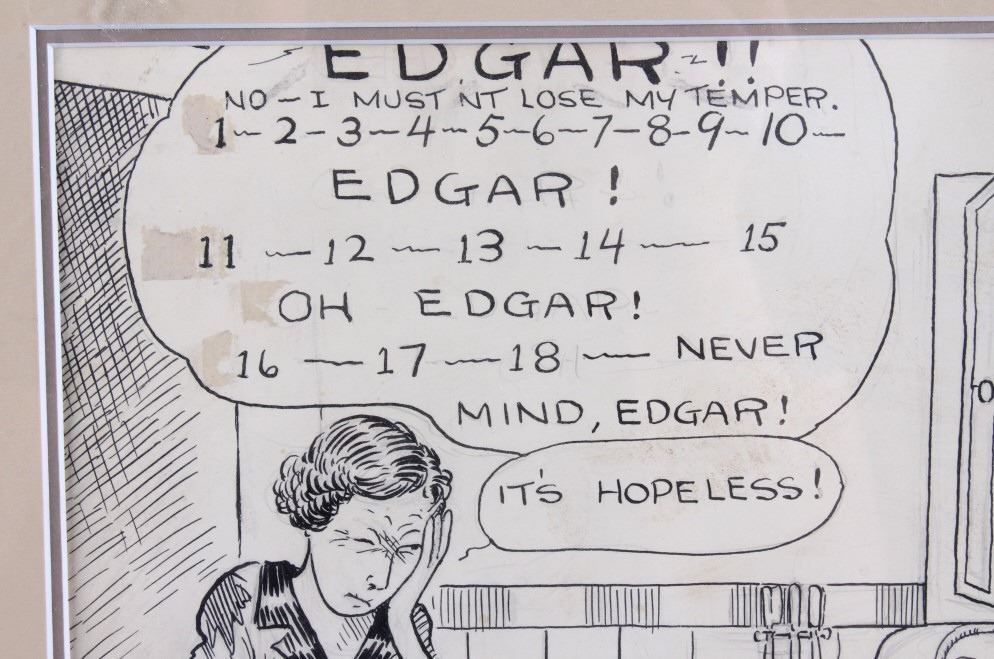 EDGAR!!
NO - I MUST'NT LOSE MY TEMPER.
1 - 2 - 3 - 4 - 5 - 6 - 7 - 8 - 9 - 10 -
EDGAR!
11 - 12 - 13 - 14 - 15
OH EDGAR!
16 - 17 - 18 - NEVER
MIND, EDGAR!
IT'S HOPELESS!